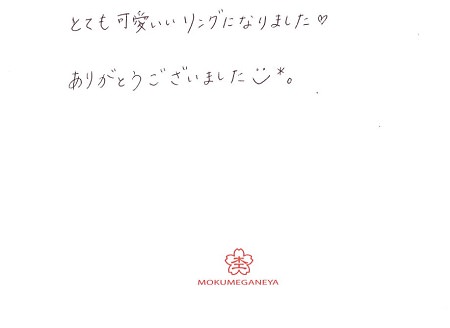 とても可愛いいリングになりました♡
ありがとうございました☺*。
MOKUMEGANEYA